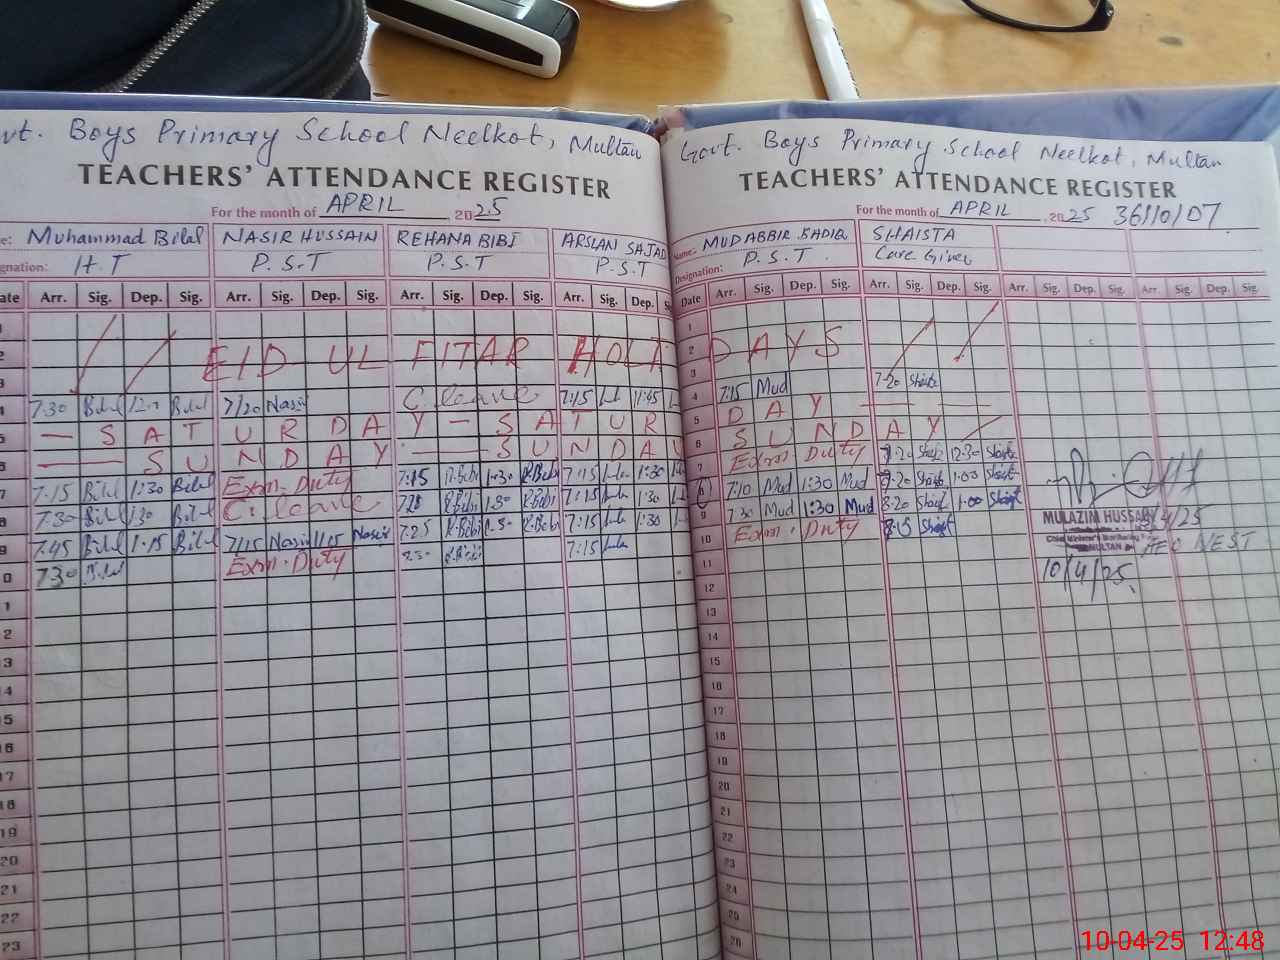 vt. Boys Primary School Neelkot, Multan
TEACHERS' ATTENDANCE REGISTER
For the month of APRIL, 2025
e: Muhammad Bilal NASIR HUSSAIN REHANA BIBI ARSLAN SAJAD
gnation: H.T P.S.T P.S.T P.S.T
ate Arr. Sig. Dep. Sig. Arr. Sig. Dep. Sig. Arr. Sig. Dep. Sig. Arr. Sig. Dep. S
1
2 EID UL FITAR HOLI
3
4 7:30 Bilal Bilal 7/20 Nasir C. leave 7:15 11:45
5 — SATURDAY — SATUR
6 — — SUNDAY — — SUNDAY
7 7:15 Bilal 1:30 Bilal Exm. Duty 7:15 R.Bibi 1:30 R.Bibi 7:15 1:30
8 7:30 Bilal 1:30 Bilal C. leave R.Bibi 1:30 R.Bibi 7:15 1:30
9 7:45 Bilal 1:15 Bilal 7/15 Nasir 1/15 Nasir 7:25 R.Bibi R.Bibi 7:15 1:30
0 7:30 Bilal Exm. Duty R.Bibi 7:15
1
2
3
14
15
16
17
18
19
20
21
22
23
Govt. Boys Primary School Neelkot, Multan
TEACHERS' ATTENDANCE REGISTER
For the month of APRIL, 2025 36110107
Name: MUDABBIR SADIQ SHAISTA
Designation: P.S.T. Care Giver
Date Arr. Sig. Dep. Sig. Arr. Sig. Dep. Sig. Arr. Sig. Dep. Sig. Arr. Sig. Dep. Sig.
1
2 DAYS
3
4 7:15 Mud 7-20
5 DAY — —
6 SUNDAY
7 Exm. Duty 7-20 12-30
8 7:10 Mud 1:30 Mud 7-20 1-00
9 7:30 Mud 1:30 Mud 8-20 1-00
10 Exm. Duty 8-15
11
12
13
14
15
16
17
18
19
20
21
22
23
24
25
26
MULAZIM HUSSAIN /4/25
Chief Minister's Monitoring
MULTAN AEO WEST
10/4/25
10-04-25 12:48